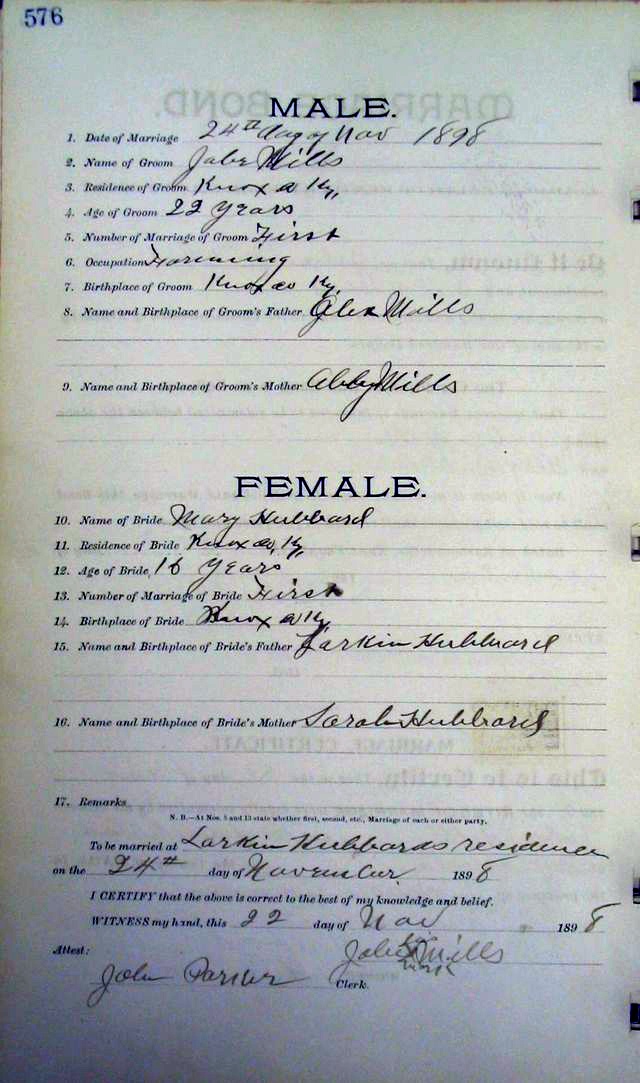 576
MALE.
1. Date of Marriage 24th day of Nov 1898
2. Name of Groom Jabe Mills
3. Residence of Groom Knox Co Ky,
4. Age of Groom 22 Years
5. Number of Marriage of Groom First
6. Occupation Farming
7. Birthplace of Groom Knox Co Ky.
8. Name and Birthplace of Groom's Father Alex Mills
9. Name and Birthplace of Groom's Mother Abby Mills
FEMALE.
10. Name of Bride Mary Hubbard
11. Residence of Bride Knox Co, Ky
12. Age of Bride, Years
13. Number of Marriage of Bride First
14. Birthplace of Bride Knox Co Ky
15. Name and Birthplace of Bride's Father Larkin Hubbard
16. Name and Birthplace of Bride's Mother Sarah Hubbard
17. Remarks
N. B.—At Nos. 5 and 13 state whether first, second, etc., Marriage of each or either party.
To be married at Larkin Hubbards residence
on the 24th day of November 1898
I CERTIFY that the above is correct to the best of my knowledge and belief.
WITNESS my hand, this 22 day of Nov 1898
Jabe his X Mills
mark
Attest:
John Parker Clerk.